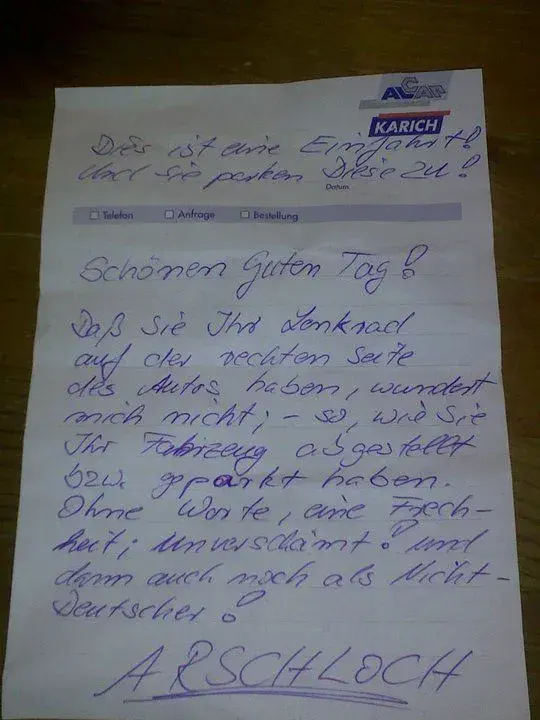 ALCAR
KARICH
Dies ist eine Einfahrt!
Und sie parken Diese zu!
Datum
Telefon Anfrage Bestellung
Schönen Guten Tag!
Daß Sie Ihr Lenkrad
auf der rechten Seite
des Autos haben, wundert
mich nicht; - so, wie Sie
Ihr Fahrzeug abgestellt
bzw. geparkt haben.
Ohne Worte, eine Frech-
heit; unverschämt! und
dann auch noch als Nicht-
Deutscher!
ARSCHLOCH